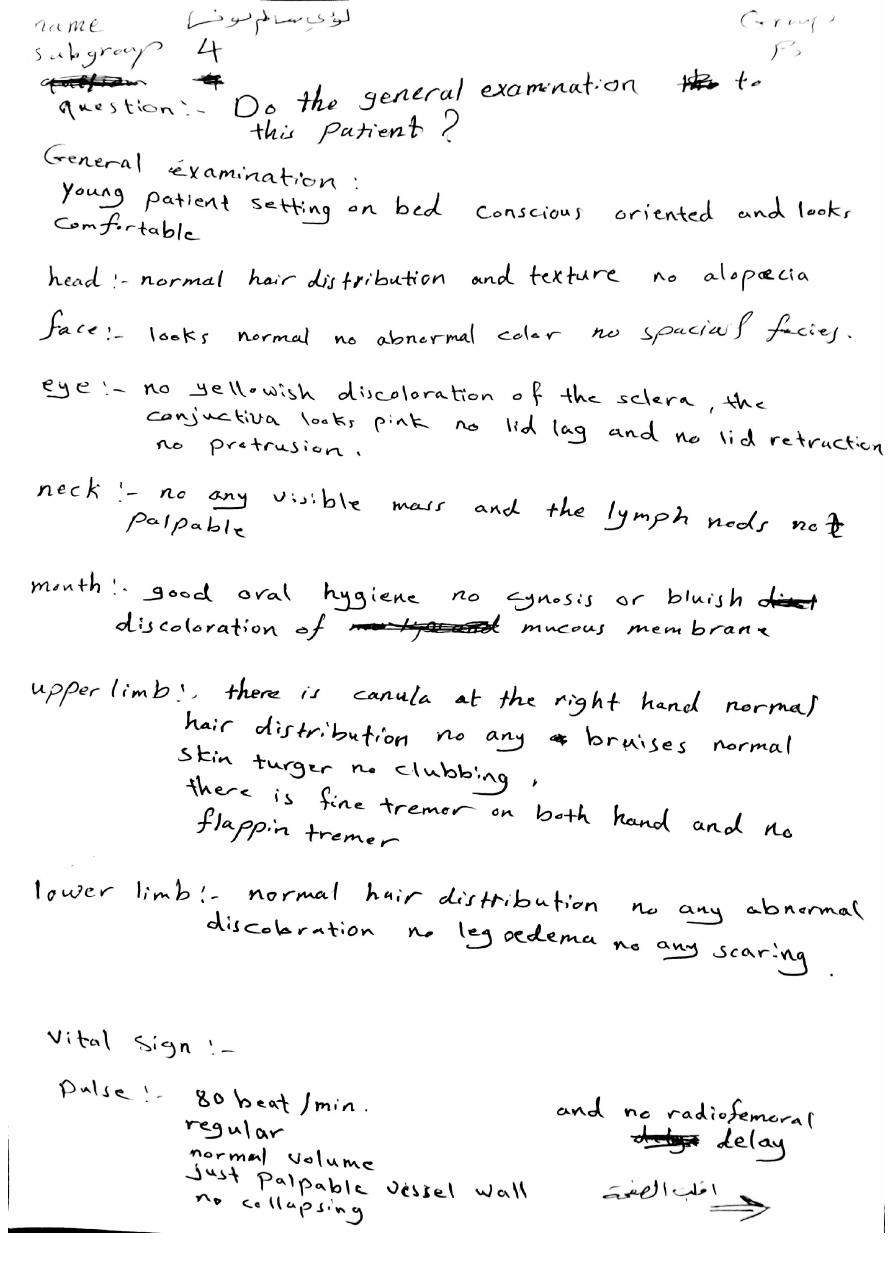 name لؤي سالم يونس Group
subgroup 4 F3
question:- Do the general examination to
this patient?
General examination:
young patient setting on bed conscious oriented and looks
comfortable
head:- normal hair distribution and texture no alopæcia
face:- looks normal no abnormal color no spacial facies.
eye:- no yellowish discoloration of the sclera, the
conjuctiva looks pink no lid lag and no lid retruction
no protrusion.
neck:- no any visible mass and the lymph nods not
palpable
month:- good oral hygiene no cynosis or bluish
discoloration of mucous membrane
upper limb:- there is canula at the right hand normal
hair distribution no any bruises normal
skin turger no clubbing,
there is fine tremor on both hand and no
flappin tremer
lower limb:- normal hair distribution no any abnormal
discoloration no leg oedema no any scaring.
Vital sign:-
Pulse:- 80 beat/min.
regular
normal volume
just palpable vessel wall
no collapsing
and no radiofemoral
delay
اقلب الصفحة